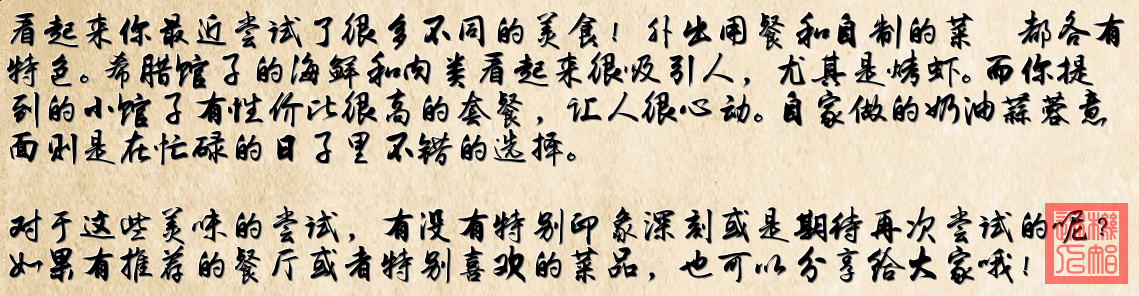 看起来你最近尝试了很多不同的美食！外出用餐和自制的菜 都各有
特色。希腊馆子的海鲜和肉类看起来很吸引人，尤其是烤虾。而你提
到的小馆子有性价比很高的套餐，让人很心动。自家做的奶油蒜蓉意
面则是在忙碌的日子里不错的选择。
对于这些美味的尝试，有没有特别印象深刻或是期待再次尝试的呢？
如果有推荐的餐厅或者特别喜欢的菜品，也可以分享给大家哦！